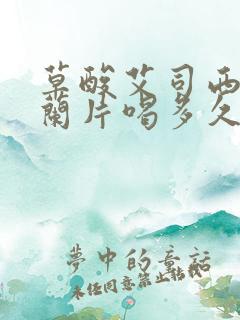 草酸艾司西
兰片喝多久
梦中的童话
未经同意禁止转载